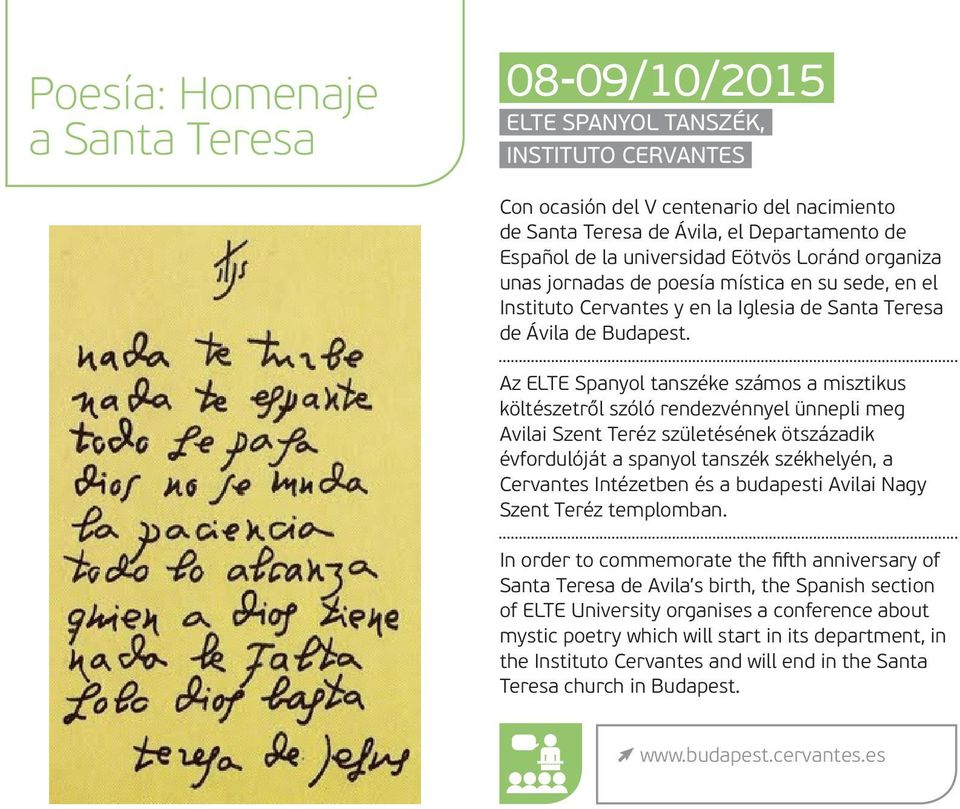 Poesía: Homenaje
a Santa Teresa
08-09/10/2015
ELTE SPANYOL TANSZÉK,
INSTITUTO CERVANTES
Con ocasión del V centenario del nacimiento
de Santa Teresa de Ávila, el Departamento de
Español de la universidad Eötvös Loránd organiza
unas jornadas de poesía mística en su sede, en el
Instituto Cervantes y en la Iglesia de Santa Teresa
de Ávila de Budapest.
Az ELTE Spanyol tanszéke számos a misztikus
költészetről szóló rendezvénnyel ünnepli meg
Avilai Szent Teréz születésének ötszázadik
évfordulóját a spanyol tanszék székhelyén, a
Cervantes Intézetben és a budapesti Avilai Nagy
Szent Teréz templomban.
In order to commemorate the fifth anniversary of
Santa Teresa de Avila's birth, the Spanish section
of ELTE University organises a conference about
mystic poetry which will start in its department, in
the Instituto Cervantes and will end in the Santa
Teresa church in Budapest.
www.budapest.cervantes.es
nada te turbe
nada te espante
todo se pasa
dios no se muda
la paciencia
todo lo alcanza
quien a dios tiene
nada le falta
solo dios basta
teresa de Jesus